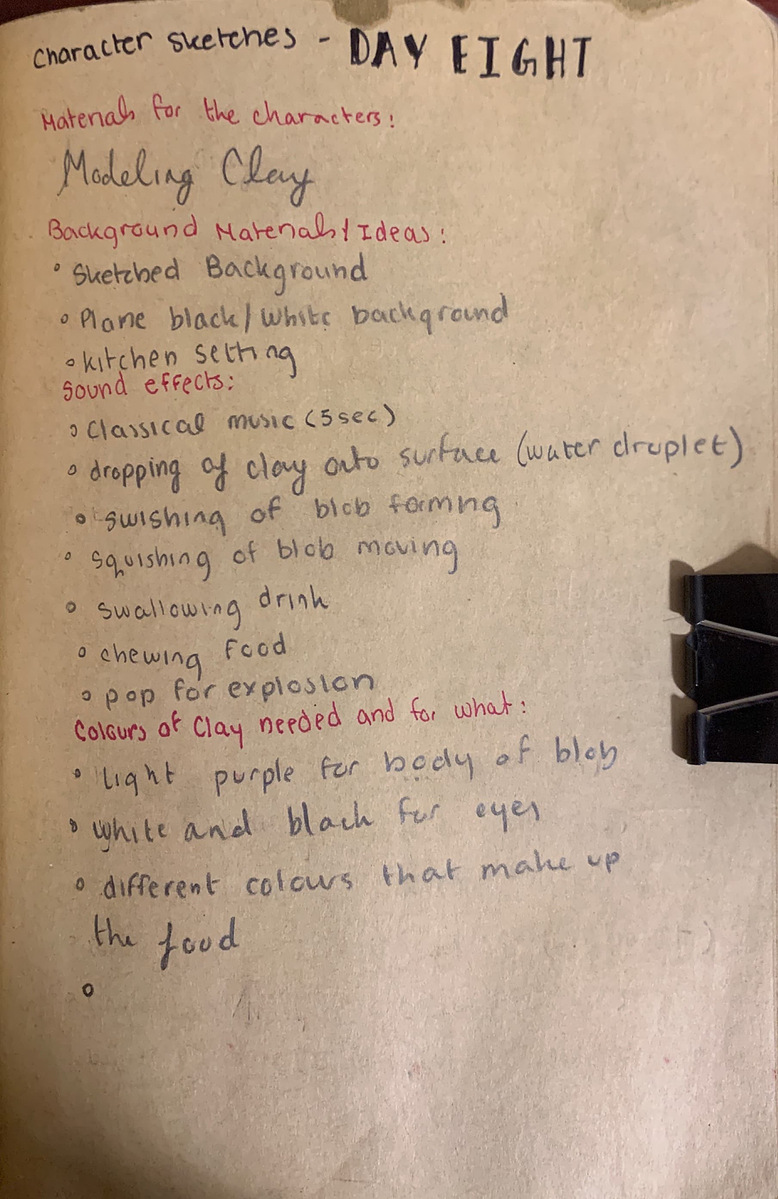 Character Sketches - DAY EIGHT
Materials for the characters:
Modeling Clay
Background Materials/Ideas:
• Sketched Background
• Plane black/white background
• kitchen setting
Sound effects:
• Classical music (5sec)
• dropping of clay onto surface (water droplet)
• swishing of blob forming
• squishing of blob moving
• swallowing drink
• chewing food
• pop for explosion
Colours of Clay needed and for what:
• light purple for body of blob
• white and black for eyes
• different colours that make up
the food
•